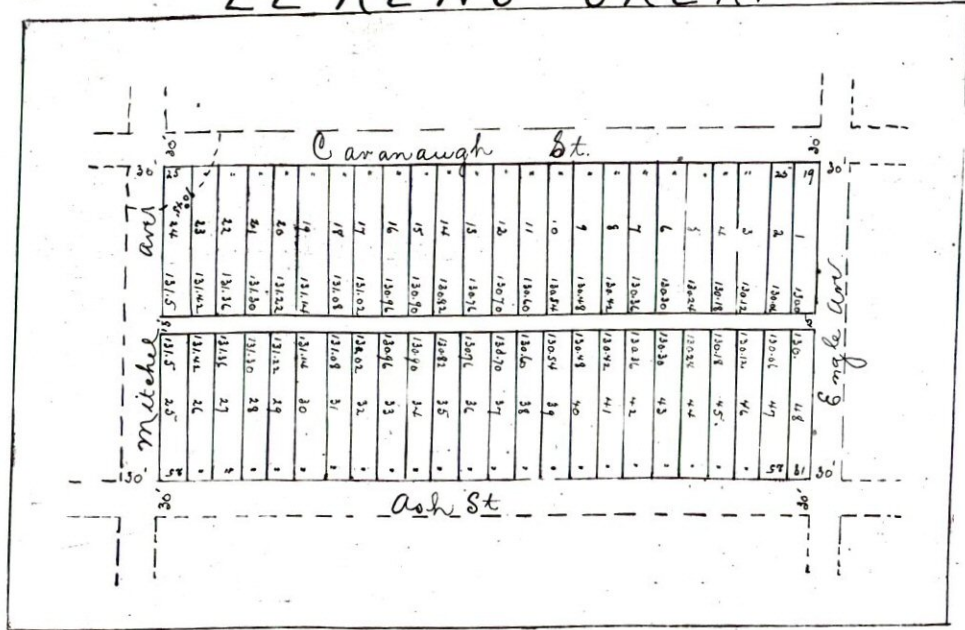 EL RENO OKLA.
30' 30'
Cavanaugh St.
30' 25 " " " " " " " " " " " " " " " " " " " " " 25 19 30'
24 23 22 21 20 19 18 17 16 15 14 13 12 11 10 9 8 7 6 5 4 3 2 1
131.5 131.42 131.36 131.30 131.22 131.14 131.08 131.02 130.96 130.90 130.82 130.76 130.70 130.60 130.54 130.48 130.42 130.36 130.30 130.24 130.18 130.12 130.06 130.0
Mitchel Ave
Engle Ave
131.5 131.42 131.36 131.30 131.22 131.14 131.08 131.02 130.96 130.90 130.82 130.76 130.70 130.60 130.54 130.48 130.42 130.36 130.30 130.24 130.18 130.12 130.06 130.
25 26 27 28 29 30 31 32 33 34 35 36 37 38 39 40 41 42 43 44 45 46 47 48
30' 25 " " " " " " " " " " " " " " " " " " " " " 25 19 30'
30' 30'
Ash St